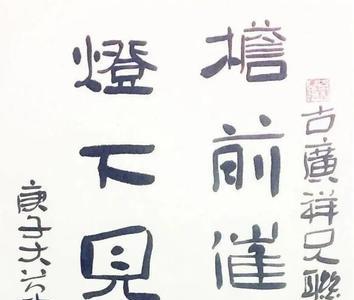 古廣祥兄聯
檐前催
燈下見
庚子